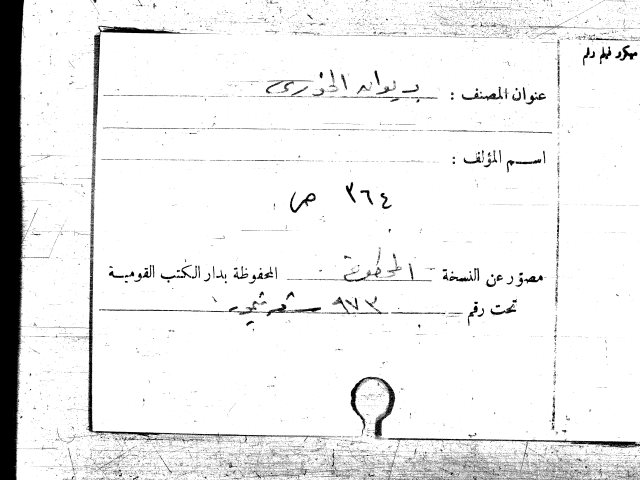 ميكرو فيلم رقم
عنوان المصنف : ديوان الخوري
اسم المؤلف :
٣٦٤ ص
مصور عن النسخة المخطوطة المحفوظة بدار الكتب القومية
تحت رقم ٩٧٣ شعر تيمور